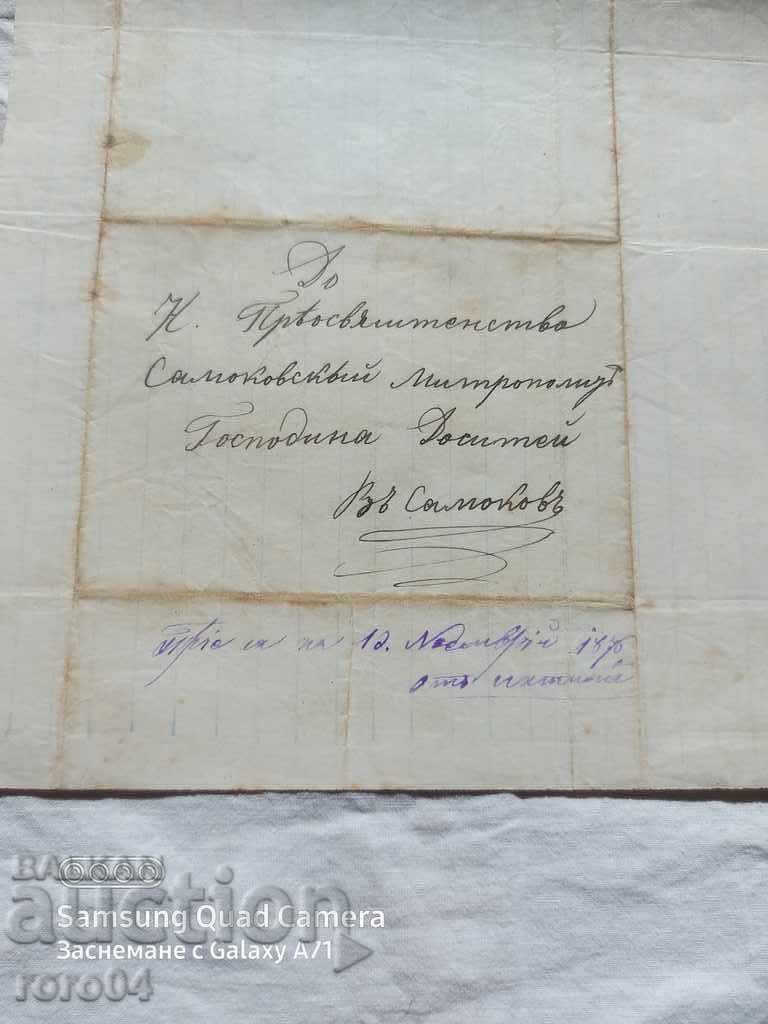 До
Н. Прѣосвященство
Самоковскый Митрополитъ
Господина Доситей
Въ Самоковъ
на Ноемврій
отъ
БАЛКАН
auction
Samsung Quad Camera
Заснемане с Galaxy A71
roro04